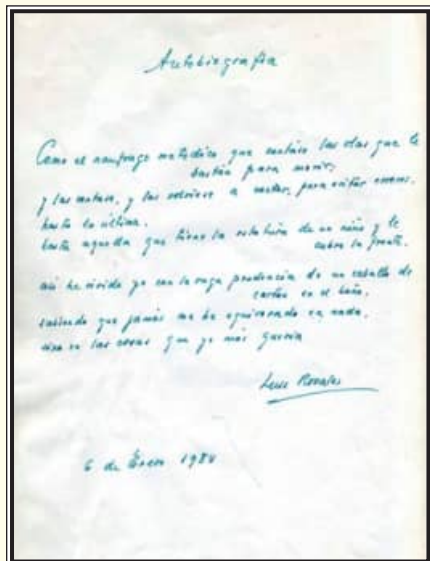 Autobiografía
Como el naufrago metódico que contase las olas que le
bastan para morir;
y las contase, y las volviese a contar, para evitar errores,
hasta la última,
hasta aquella que tiene la estatura de un niño y le
cubre la frente,
así he vivido yo con la vaga prudencia de un caballo de
cartón en el baño,
sabiendo que jamás me he equivocado en nada,
sino en las cosas que yo más quería
Luis Rosales
6 de Enero 1984